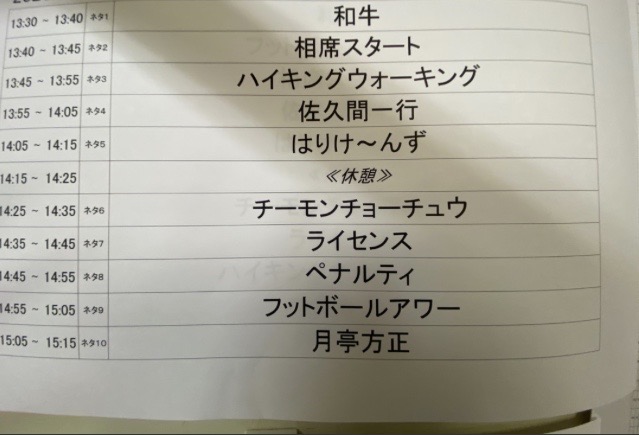 13:30 ~ 13:40 ネタ1 和牛
13:40 ~ 13:45 ネタ2 相席スタート
13:45 ~ 13:55 ネタ3 ハイキングウォーキング
13:55 ~ 14:05 ネタ4 佐久間一行
14:05 ~ 14:15 ネタ5 はりけ～んず
14:15 ~ 14:25 ≪休憩≫
14:25 ~ 14:35 ネタ6 チーモンチョーチュウ
14:35 ~ 14:45 ネタ7 ライセンス
14:45 ~ 14:55 ネタ8 ペナルティ
14:55 ~ 15:05 ネタ9 フットボールアワー
15:05 ~ 15:15 ネタ10 月亭方正